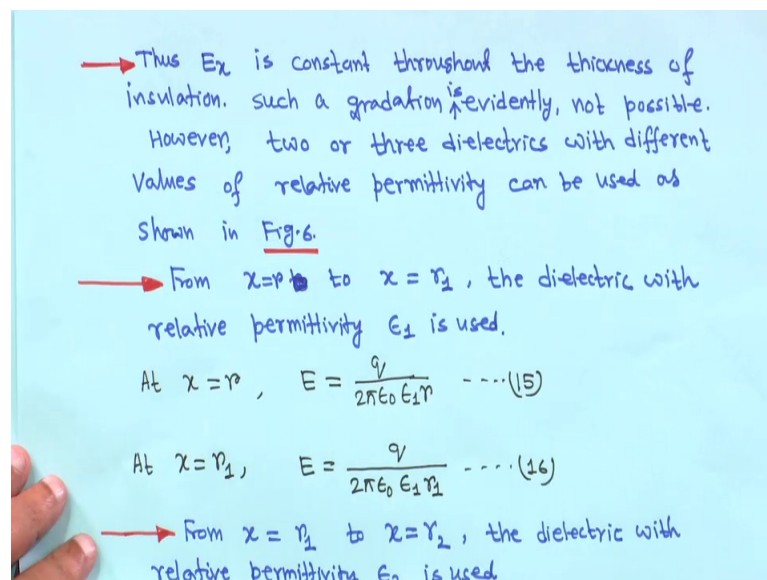 → Thus Ex is constant throughout the thickness of
insulation. such a gradation is evidently, not possible.
However, two or three di-electrics with different
values of relative permittivity can be used as
shown in Fig.6.
→ From x=r to x = r₁, the di-electric with
relative permittivity ϵ₁ is used.
At x = r, E = q / (2πϵ₀ ϵ₁ r) ----(15)
At x = r₁, E = q / (2πϵ₀ ϵ₁ r₁) ----(16)
→ From x = r₁ to x = r₂, the dielectric with
relative permittivity ϵ₂ is used